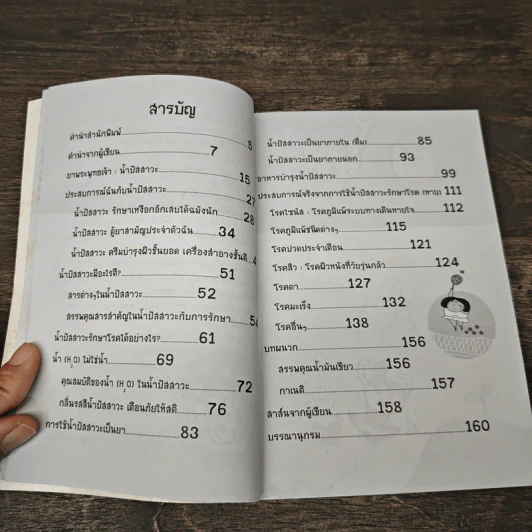 สารบัญ
คำนำสำนักพิมพ์ 5
คำนำจากผู้เขียน 7
ยาพระพุทธเจ้า : น้ำปัสสาวะ 15
ประสบการณ์ฉันกับน้ำปัสสาวะ 27
น้ำปัสสาวะ รักษาเหงือกอักเสบได้ฉมังนัก 28
น้ำปัสสาวะ ตู้ยาสามัญประจำตัวฉัน 34
น้ำปัสสาวะ ครีมบำรุงผิวชั้นยอด เครื่องสำอางชั้นดี 4
น้ำปัสสาวะมีอะไรดี? 51
สารต่างๆในน้ำปัสสาวะ 52
สรรพคุณสารสำคัญในน้ำปัสสาวะกับการรักษา 54
น้ำปัสสาวะรักษาโรคได้อย่างไร? 61
น้ำ (H2O) ไม่ใช่น้ำ 69
คุณสมบัติของน้ำ (H2O) ในน้ำปัสสาวะ 72
กลิ่นรสสีน้ำปัสสาวะ เตือนภัยให้สติ 76
การใช้น้ำปัสสาวะเป็นยา 83
น้ำปัสสาวะเป็นยาภายใน (ดื่ม) 85
น้ำปัสสาวะเป็นยาภายนอก 93
อาหารบำรุงน้ำปัสสาวะ 99
ประสบการณ์จริงจากการใช้น้ำปัสสาวะรักษาโรค (หาย) 111
โรคไซนัส : โรคภูมิแพ้ระบบทางเดินหายใจ 112
โรคภูมิแพ้ชนิดต่างๆ 115
โรคปวดประจำเดือน 121
โรคสิว : โรคผิวหนังที่วัยรุ่นกลัว 124
โรคตา 127
โรคมะเร็ง 132
โรคอื่นๆ 138
บทผนวก 156
สรรพคุณน้ำมันเขียว 156
กาเนติ 157
สาส์นจากผู้เขียน 158
บรรณานุกรม 160